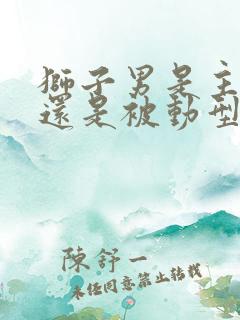 獅子男是主
還是被動型
陳舒一
未經同意禁止轉載